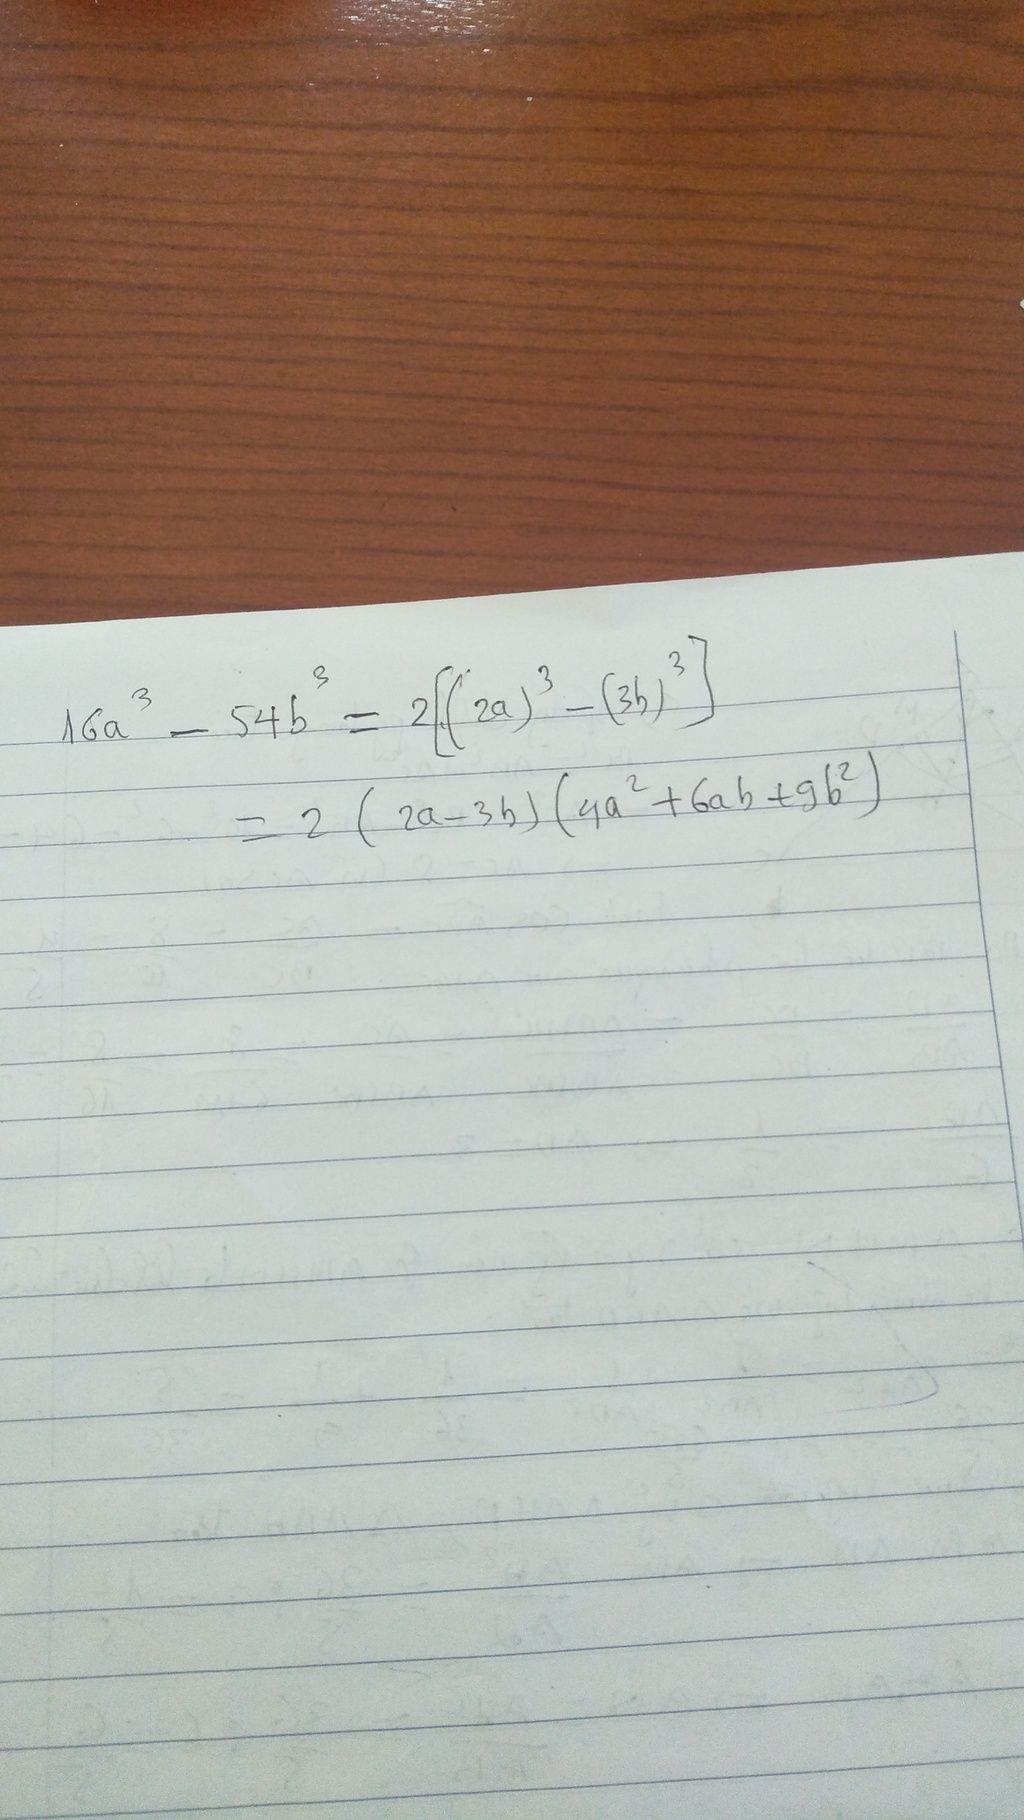 16a³ - 54b³ = 2[(2a)³ - (3b)³]
= 2 (2a-3b)(4a²+6ab+9b²)